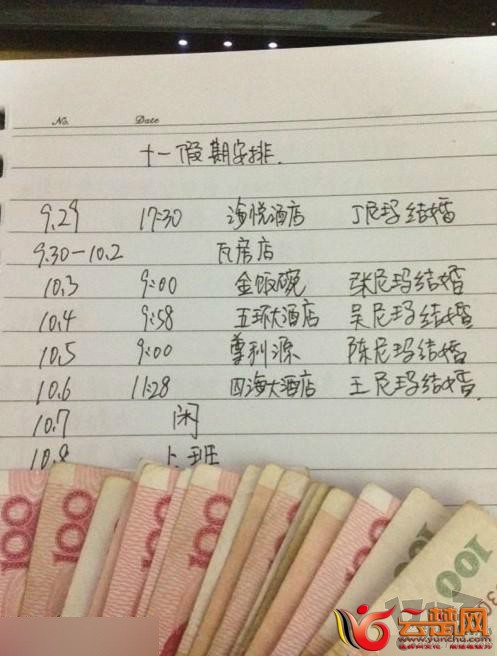 No. Date
十一假期安排.
9.29 17:30 海悦酒店 丁尼玛结婚
9.30—10.2 瓦房店
10.3 9:00 金饭碗 张尼玛结婚
10.4 9:58 五环大酒店 吴尼玛结婚
10.5 9:00 尊利源 陈尼玛结婚
10.6 11:28 四海大酒店 王尼玛结婚.
10.7 闲
10.8 上班
100 100 100 100 100 100
云楚网
www.yunchu.com